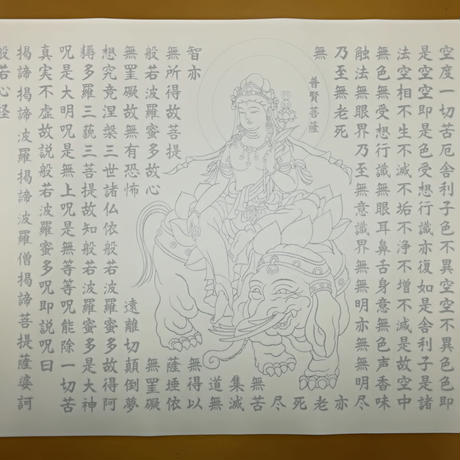 空度一切苦厄舎利子色不異空空不異色色即
是空空即是色受想行識亦復如是舎利子是諸
法空相不生不滅不垢不浄不増不減是故空中
無色無受想行識無眼耳鼻舌身意無色声香味
触法無眼界乃至無意識界無無明亦無無明尽
乃至無老死亦
無老
普賢菩薩
死
尽
無苦
集滅
道無
智亦無得以
無所得故菩提薩埵依
般若波羅蜜多故心無罣礙
無罣礙故無有恐怖遠離切顛倒夢
想究竟涅槃三世諸仏依般若波羅蜜多故得阿
耨多羅三藐三菩提故知般若波羅蜜多是大神
呪是大明呪是無上呪是無等等呪能除一切苦
真実不虚故説般若波羅蜜多呪即説呪曰
掲諦掲諦波羅掲諦波羅僧掲諦菩提薩婆訶
般若心経